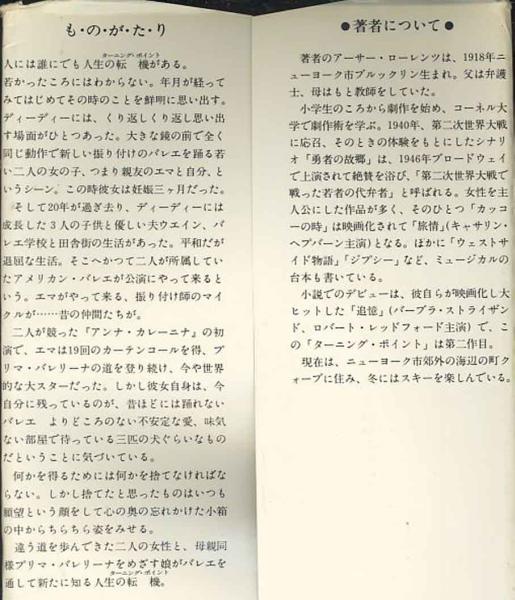 も・の・が・た・り
人には誰にでも人生の転機がある。
ターニング・ポイント
若かったころにはわからない。年月が経って
みてはじめてその時のことを鮮明に思い出す。
ディーディーには、くり返しくり返し思い出
す場面がひとつあった。大きな鏡の前で全く
同じ動作で新しい振り付けのバレエを踊る若
い二人の女の子、つまり親友のエマと自分、と
いうシーン。この時彼女は妊娠三ヶ月だった。
そして20年が過ぎ去り、ディーディーには
成長した3人の子供と優しい夫ウエイン、バ
レエ学校と田舎街の生活があった。平和だが
退屈な生活。そこへかつて二人が所属してい
たアメリカン・バレエが公演にやって来ると
いう。エマがやって来る、振り付け師のマイ
クルが……昔の仲間たちが。
二人が競った「アンナ・カレーニナ」の初
演で、エマは19回のカーテンコールを得、プ
リマ・バレリーナの道を登り続け、今や世界
的な大スターだった。しかし彼女自身は、今
自分に残っているのが、昔ほどには踊れない
バレエ よりどころのない不安定な愛、味気
ない部屋で待っている三匹の犬ぐらいなもの
だということに気づいている。
何かを得るためには何かを捨てなければな
らない。しかし捨てたと思ったものはいつも
願望という顔をして心の奥の忘れかけた小箱
の中からちらちら姿をみせる。
違う道を歩んできた二人の女性と、母親同
様プリマ・バレリーナをめざす娘がバレエを
通して新たに知る人生の転機。
ターニング・ポイント
●著者について●
著者のアーサー・ローレンツは、1918年ニ
ューヨーク市ブルックリン生まれ。父は弁護
士、母はもと教師をしていた。
小学生のころから劇作を始め、コーネル大
学で劇作術を学ぶ。1940年、第二次世界大戦
に応召、そのときの体験をもとにしたシナリ
オ「勇者の故郷」は、1946年ブロードウェイ
で上演されて絶賛を浴び、「第二次世界大戦で
戦った若者の代弁者」と呼ばれる。女性を主
人公にした作品が多く、そのひとつ「カッコ
ーの時」は映画化されて「旅情」(キャサリン・
ヘプバーン主演)となる。ほかに「ウェストサ
イド物語」「ジプシー」など、ミュージカルの
台本も書いている。
小説でのデビューは、彼自らが映画化し大
ヒットした「追憶」(バーブラ・ストライザン
ド、ロバート・レッドフォード主演)で、こ
の「ターニング・ポイント」は第二作目。
現在は、ニューヨーク市郊外の海辺の町ク
ォーブに住み、冬にはスキーを楽しんでいる。